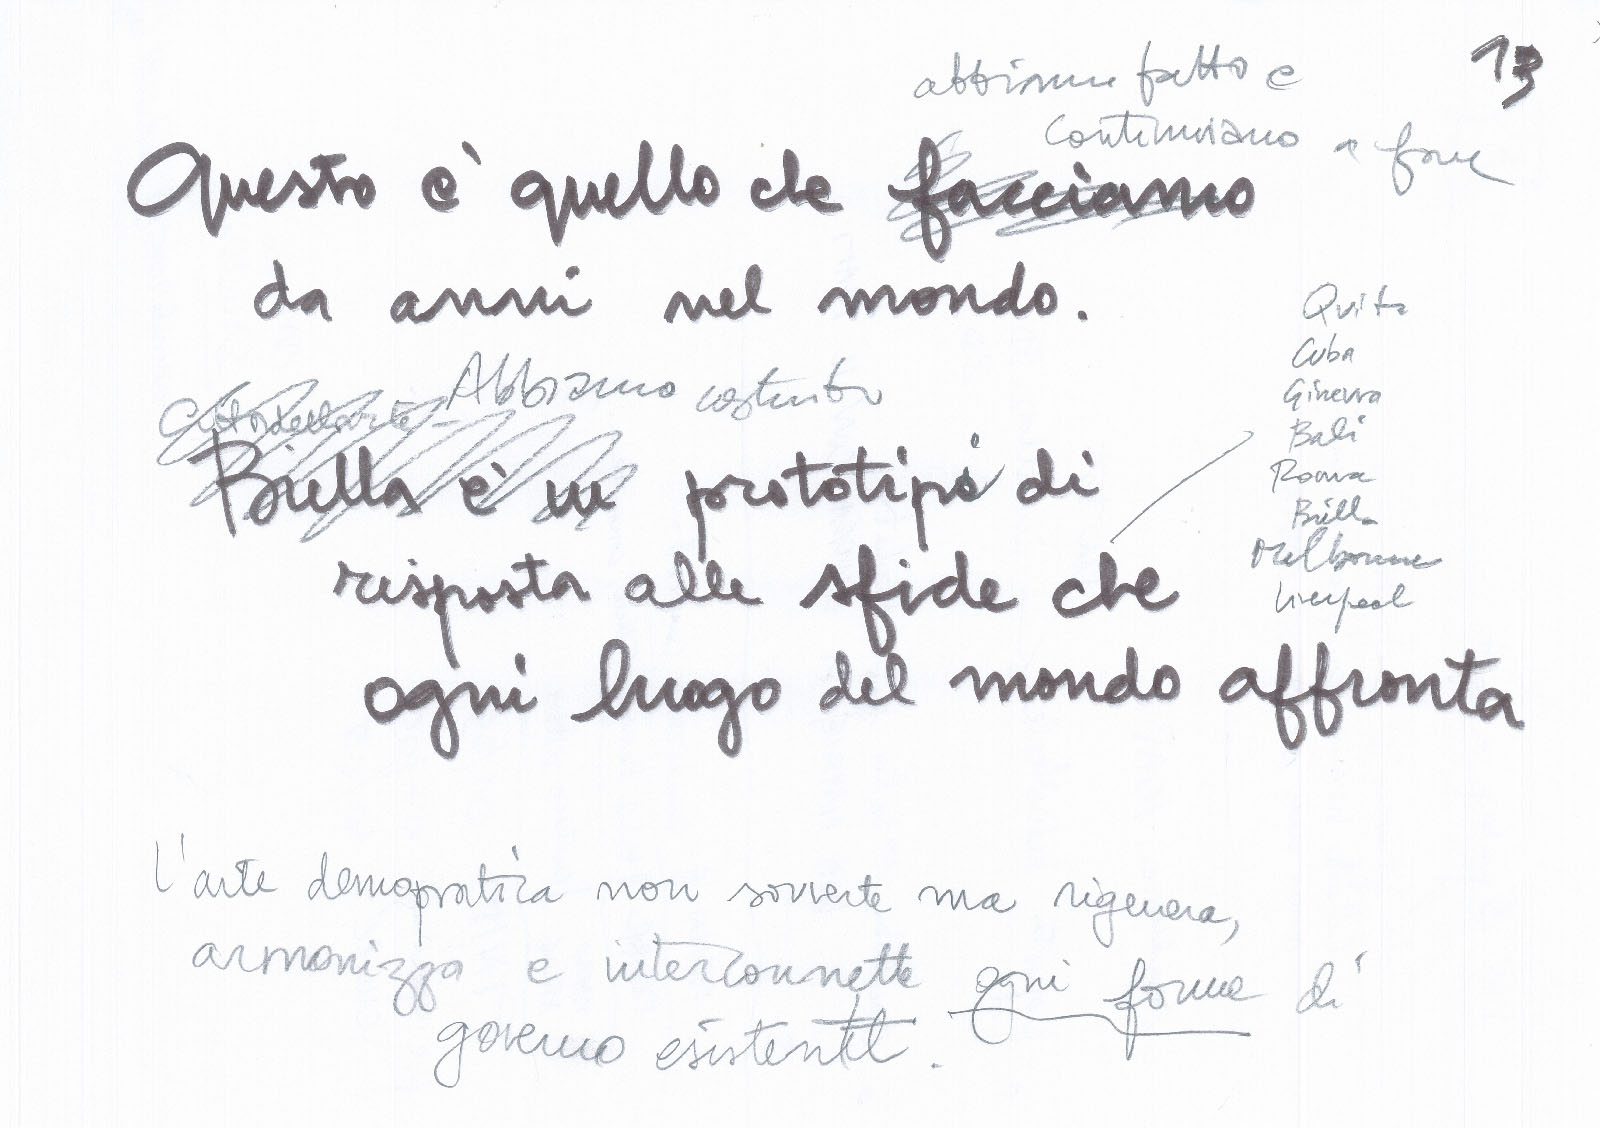 13
abbiamo fatto e
continuiamo a fare
Questo è quello che facciamo
da anni nel mondo.
Quito
Cuba
Ginevra
Bali
Roma
Biella
Melbourne
Liverpool
Cittadellarte - Abbiamo costruito
Biella è un prototipo di
risposta alle sfide che
ogni luogo del mondo affronta
L'arte demopratica non sovverte ma rigenera,
armonizza e interconnette ogni forma di
governo esistente.